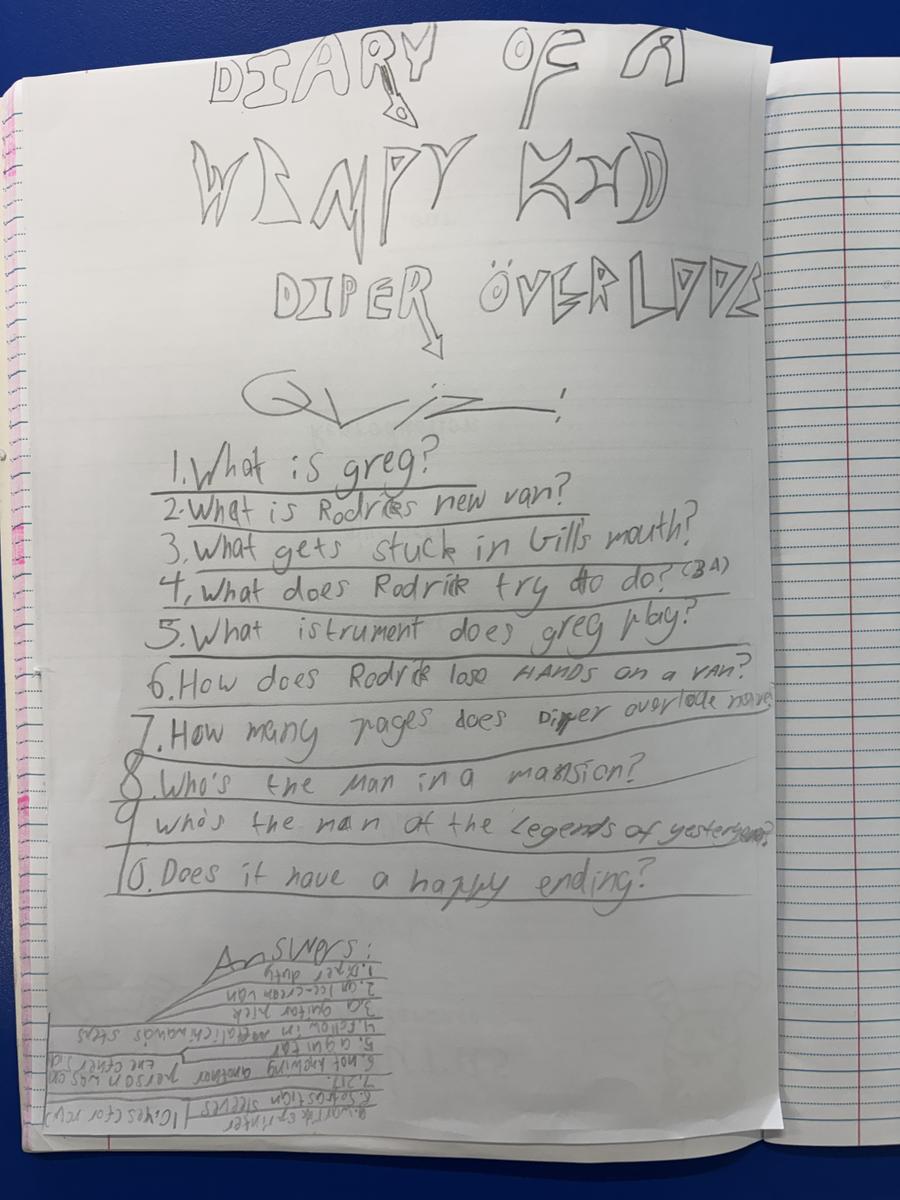 DIARY OF A
WIMPY KID
DIPER ÖVERLODE
Quiz!
1. What is greg?
2. What is Rodricks new van?
3. What gets stuck in Gills mouth?
4. What does Rodrick try to do? (BA)
5. What istrument does greg play?
6. How does Rodrick lose HANDS on a VAN?
7. How many pages does Diper overlode have?
8. Who's the Man in a mansion?
9 who's the man at the Legends of yesteryear?
10. Does it have a happy ending?
Answers:
1. Diper duty
2. an Ice-cream van
3. a guitar pick
4. Follow in metalichihuahua's steps
5. a guitar
6. not knowing another person was on the other sid
7. 217.
8. Sebastian sleeves